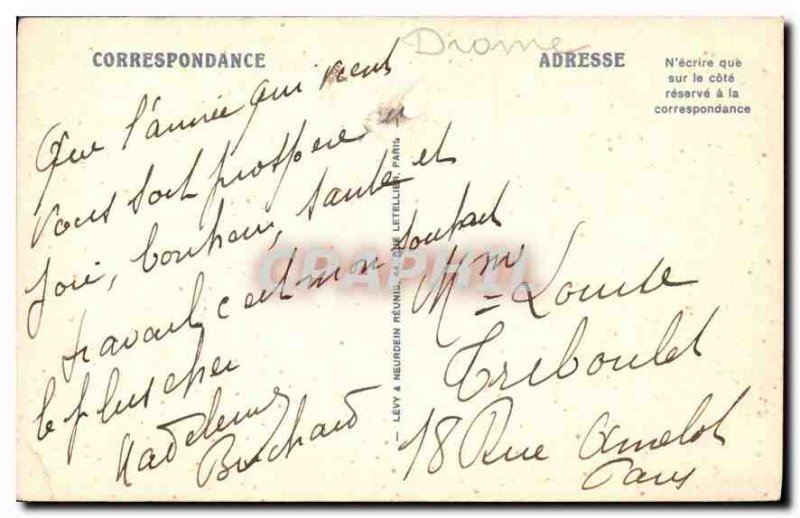 Drome
CORRESPONDANCE
ADRESSE
N'écrire que
sur le côté
réservé à la
correspondance
Que l'année qui vient
vous soit prospère et
joie, bonheur, santé et
travail c'est mon souhait
le plus cher
Madeleine
Buchard
LÉVY & NEURDEIN RÉUNIS, 44, RUE LETELLIER, PARIS
CPAPHIL
Mme Louise
Triboulet
18 Rue Amelot
Paris